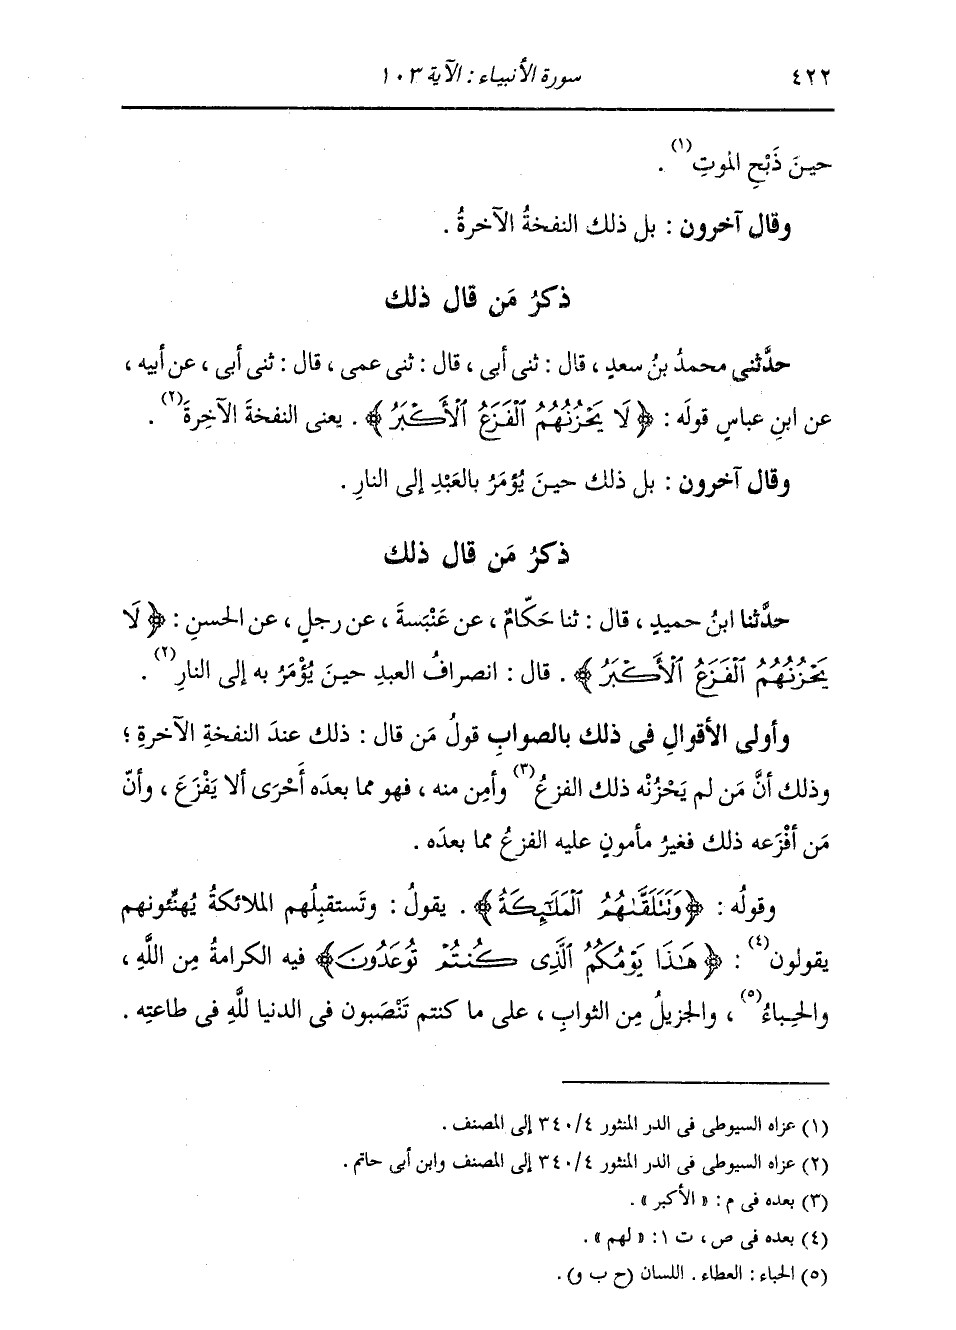 ٤٢٢ سورة الأنبياء : الآية ١٠٣
حينَ ذَبْحِ الموتِ(١) .
وقال آخرون : بل ذلك النفخةُ الآخرةُ .
ذكرُ مَن قال ذلك
حدَّثنى محمدُ بنُ سعدٍ ، قال : ثنى أبى ، قال : ثنى عمى ، قال : ثنى أبى ، عن أبيه ،
عن ابنِ عباسٍ قولَه : ﴿لَا يَحْزُنُهُمُ ٱلْفَزَعُ ٱلْأَكْبَرُ﴾ . يعنى النفخةَ الآخِرةَ(٢) .
وقال آخرون : بل ذلك حينَ يُؤمَرُ بالعَبْدِ إلى النارِ .
ذكرُ مَن قال ذلك
حدَّثنا ابنُ حميدٍ ، قال : ثنا حَكَّامٌ ، عن عَنْبَسةَ ، عن رجلٍ ، عن الحسنِ : ﴿لَا
يَحْزُنُهُمُ ٱلْفَزَعُ ٱلْأَكْبَرُ﴾ . قال : انصرافُ العبدِ حينَ يُؤْمَرُ به إلى النارِ(٢) .
وأولى الأقوالِ فى ذلك بالصوابِ قولُ مَن قال : ذلك عندَ النفخةِ الآخرةِ ؛
وذلك أنَّ مَن لم يَحْزُنْه ذلك الفزعُ(٣) وأمِن منه ، فهو مما بعدَه أَحْرَى ألا يَفْزَعَ ، وأنّ
مَن أفْزَعه ذلك فغيرُ مأمونٍ عليه الفزعُ مما بعدَه .
وقولُه : ﴿وَتَتَلَقَّىٰهُمُ ٱلْمَلَٰٓئِكَةُ﴾ . يقولُ : وتَستقبِلُهم الملائكةُ يُهنِّئونهم
يقولون(٤) : ﴿هَٰذَا يَوْمُكُمُ ٱلَّذِى كُنتُمْ تُوعَدُونَ﴾ فيه الكرامةُ مِن اللَّهِ ،
والحِباءُ(٥) ، والجزيلُ مِن الثوابِ ، على ما كنتم تَنْصَبون فى الدنيا للَّهِ فى طاعتِه .
(١) عزاه السيوطى فى الدر المنثور ٣٤٠/٤ إلى المصنف .
(٢) عزاه السيوطى فى الدر المنثور ٣٤٠/٤ إلى المصنف وابن أبى حاتم .
(٣) بعده فى م : « الأكبر » .
(٤) بعده فى ص ، ت ١: « لهم » .
(٥) الحباء : العطاء . اللسان (ح ب و) .